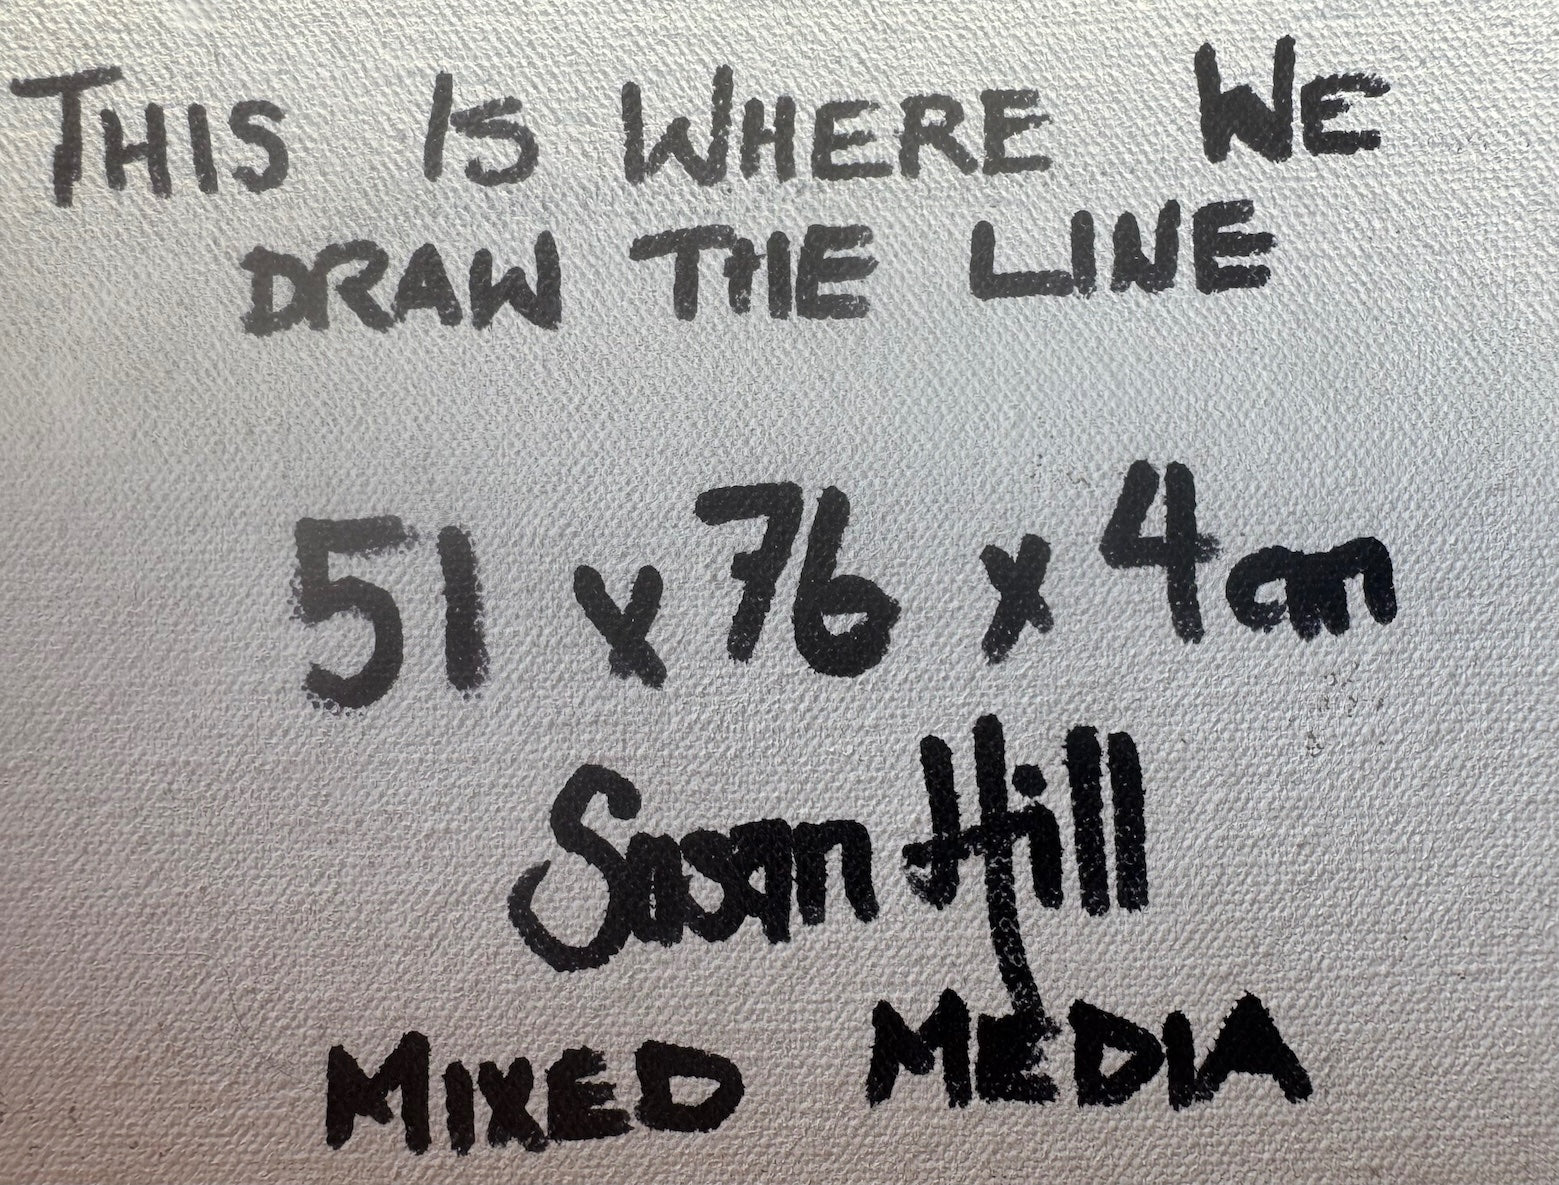 THIS IS WHERE WE
DRAW THE LINE
51 x 76 x 4cm
Susan Hill
MIXED MEDIA